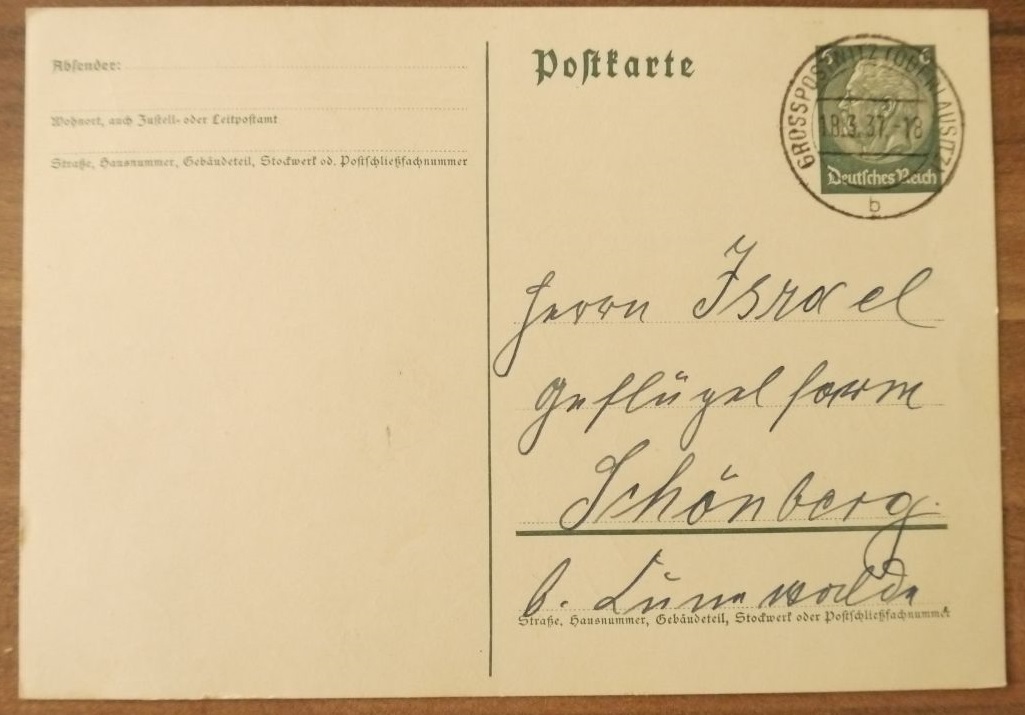 Postkarte
Absender:
Wohnort, auch Zustell- oder Leitpostamt
Straße, Hausnummer, Gebäudeteil, Stockwerk od. Postschließfachnummer
6 6
GROSSPOSTWITZ (OBERLAUSITZ)
18.3.37.-18
b
Deutsches Reich
Herrn Israel
Geflügelfarm
Schönberg
b. Cunewalde
Straße, Hausnummer, Gebäudeteil, Stockwerk oder Postschließfachnummer